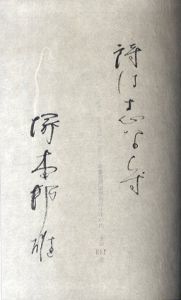 詩は志ならず
塚本邦雄